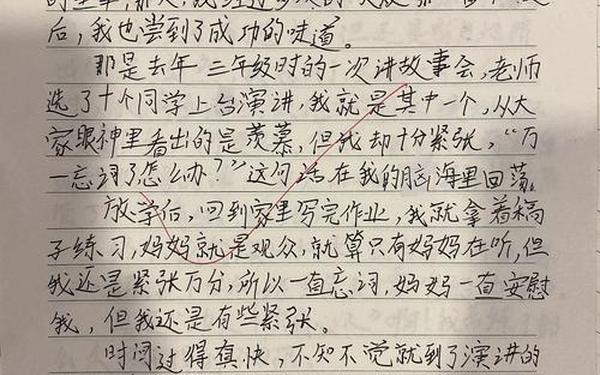 后，我也尝到了成功的味道。
那是去年三年级时的一次讲故事会，老师
选了十个同学上台演讲，我就是其中一个，从大
家眼神里看出的是羡慕，但我却十分紧张，“万
一忘词了怎么办？”这句话在我的脑海里回荡。
放学后，回到家里写完作业，我就拿着稿
子练习，妈妈就是观众，就算只有妈妈在听，但
我还是紧张万分，所以一直忘词，妈妈一直安慰
我，但我还是有些紧张。
时间过得真快，不知不觉就到了演讲的